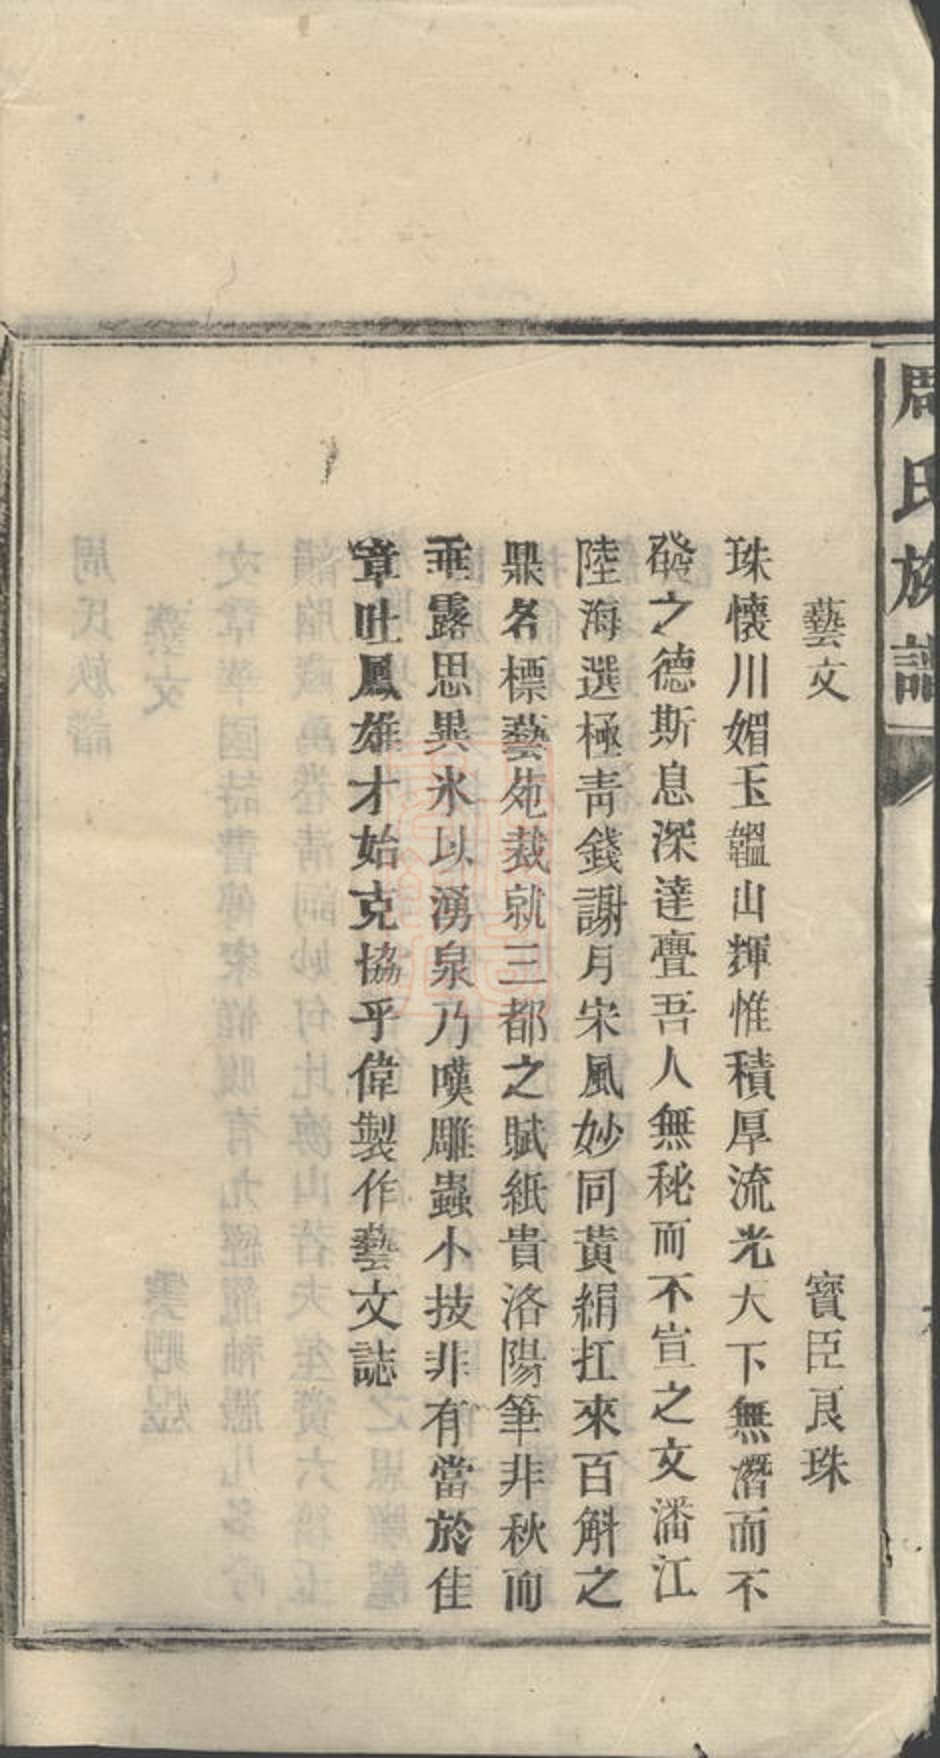 周氏族譜
藝文 寶臣良珠
珠懷川媚玉韞山輝惟積厚流光大下無潛而不
發之德斯息深達亹吾人無秘而不宣之文潘江
陸海選極青錢謝月宋風妙同黃絹扛來百斛之
鼎名標藝苑裁就三都之賦紙貴洛陽筆非秋而
垂露思異水以湧泉乃嘆雕蟲小技非有當於佳
章吐鳳雄才始克協乎偉製作藝文誌